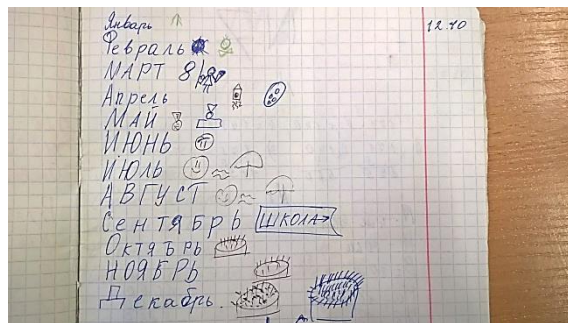 Январь 12.10
Февраль
МАРТ 8
Апрель
МАЙ
ИЮНЬ
ИЮЛЬ
АВГУСТ
Сентябрь ШКОЛА
Октябрь
НОЯБРЬ
Декабрь.